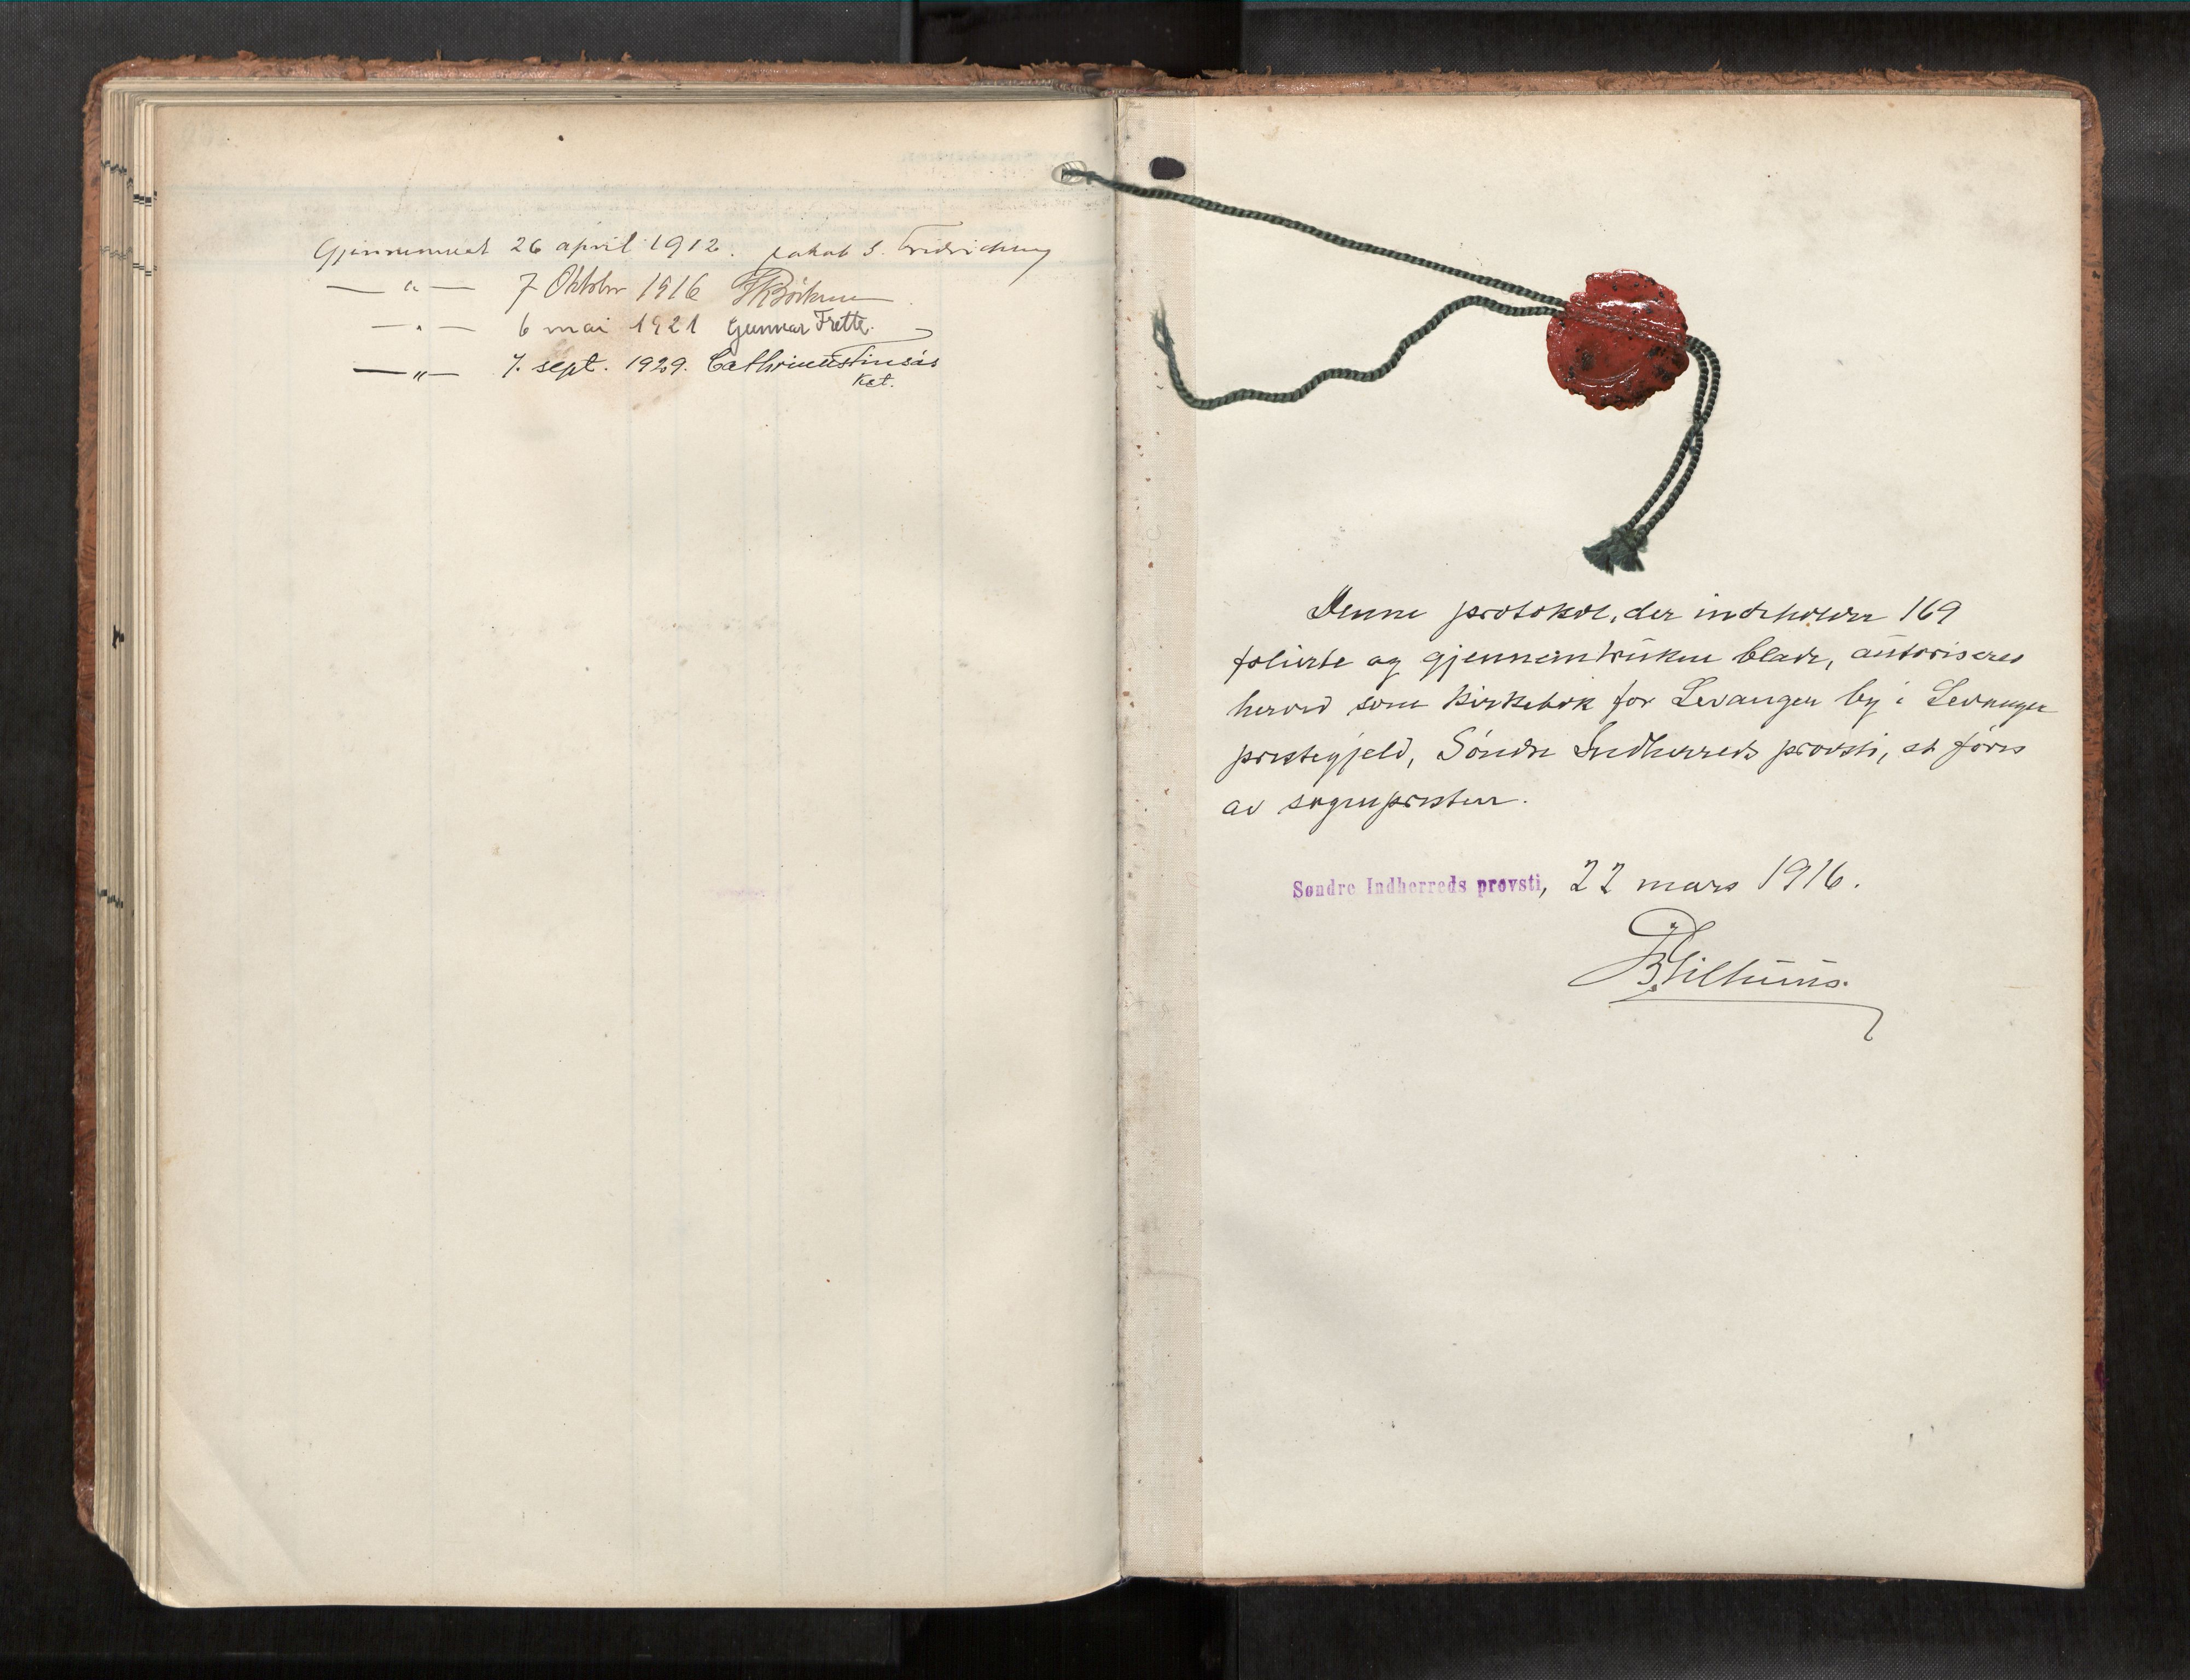 Gjennemset 26 april 1912. Jakob S. Fredrichsen
— " — 7 Oktober 1916
— " — 6 mai 1921 Gunnar Frette.
— " — 7. sept. 1929. Cathrinus Tinsås
Kat.
Denne protokol, der indeholder 169
folierte og gjennemtrukne blade, autoriseres
herved som kirkebok for Levanger by i Levanger
prestegjeld, Søndre Indherreds provsti, at føres
av sogneprsten.
Søndre Indherreds provsti, 22 mars 1916.